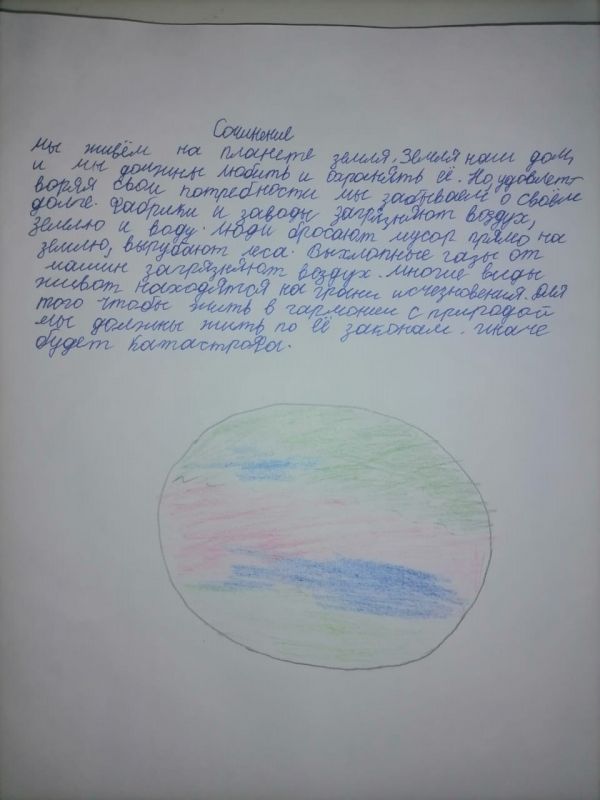 Сочинение
Мы живём на планете земля. Земля наш дом,
и мы должны любить и охранять её. Но удовлет-
воряя свои потребности мы забываем о своём
долге. Фабрики и заводы загрязняют воздух,
землю и воду. Люди бросают мусор прямо на
землю, вырубают леса. Выхлопные газы от
машин загрязняют воздух. Многие виды
живот находятся на грани исчезновения. Для
того чтобы жить в гармонии с природой
мы должны жить по её законам. Иначе
будет катастрофа.